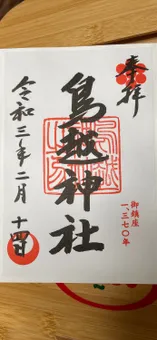 奉拝
鳥越神社
御鎮座
一、三七〇年
令和三年二月十四日